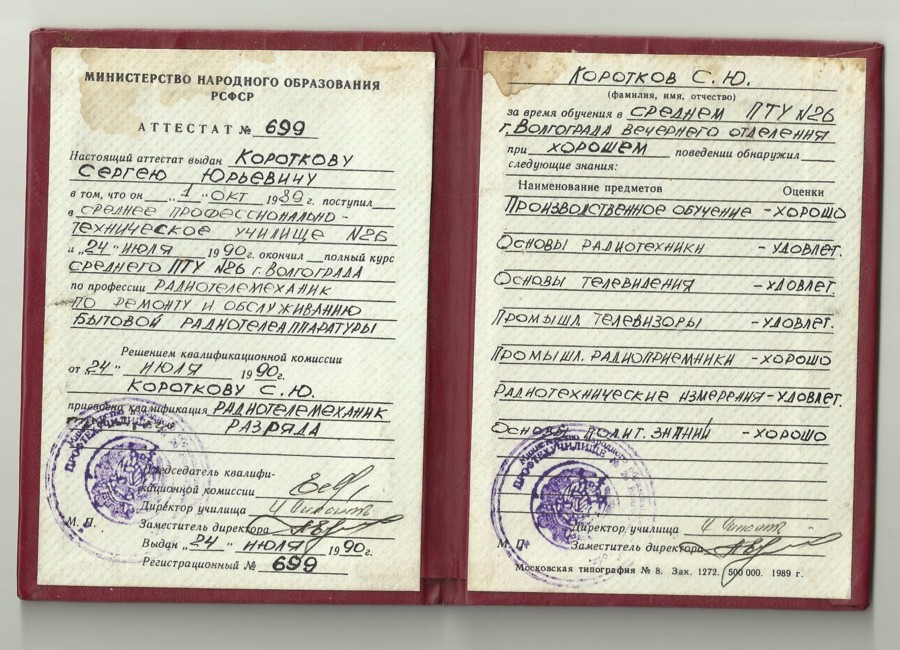 МИНИСТЕРСТВО НАРОДНОГО ОБРАЗОВАНИЯ
РСФСР
АТТЕСТАТ № 699
Настоящий аттестат выдан КОРОТКОВУ
СЕРГЕЮ ЮРЬЕВИЧУ
в том, что он „1" ОКТ 1989 г. поступил
в СРЕДНЕЕ ПРОФЕССИОНАЛЬНО-
ТЕХНИЧЕСКОЕ УЧИЛИЩЕ №26
и „24" ИЮЛЯ 1990 г. окончил полный курс
СРЕДНЕГО ПТУ №26 г. ВОЛГОГРАДА
по профессии РАДИОТЕЛЕМЕХАНИК
ПО РЕМОНТУ И ОБСЛУЖИВАНИЮ
БЫТОВОЙ РАДИОТЕЛЕАППАРАТУРЫ
Решением квалификационной комиссии
от „24" ИЮЛЯ 1990 г.
КОРОТКОВУ С. Ю.
присвоена квалификация РАДИОТЕЛЕМЕХАНИК
РАЗРЯДА
Председатель квалифи-
кационной комиссии
Директор училища
Заместитель директора
М. П.
Выдан „24" ИЮЛЯ 1990 г.
Регистрационный № 699
КОРОТКОВ С. Ю.
(фамилия, имя, отчество)
за время обучения в СРЕДНЕМ ПТУ №26
г. ВОЛГОГРАДА ВЕЧЕРНЕГО ОТДЕЛЕНИЯ
при ХОРОШЕМ поведении обнаружил
следующие знания:
Наименование предметов Оценки
ПРОИЗВОДСТВЕННОЕ ОБУЧЕНИЕ - ХОРОШО
ОСНОВЫ РАДИОТЕХНИКИ - УДОВЛЕТ.
ОСНОВЫ ТЕЛЕВИДЕНИЯ - УДОВЛЕТ.
ПРОМЫШЛ. ТЕЛЕВИЗОРЫ - УДОВЛЕТ.
ПРОМЫШЛ. РАДИОПРИЕМНИКИ - ХОРОШО
РАДИОТЕХНИЧЕСКИЕ ИЗМЕРЕНИЯ - УДОВЛЕТ.
ОСНОВЫ ПОЛИТ. ЗНАНИЙ - ХОРОШО
Директор училища
М. П.
Заместитель директора
Московская типография № 8. Зак. 1272. 500 000. 1989 г.